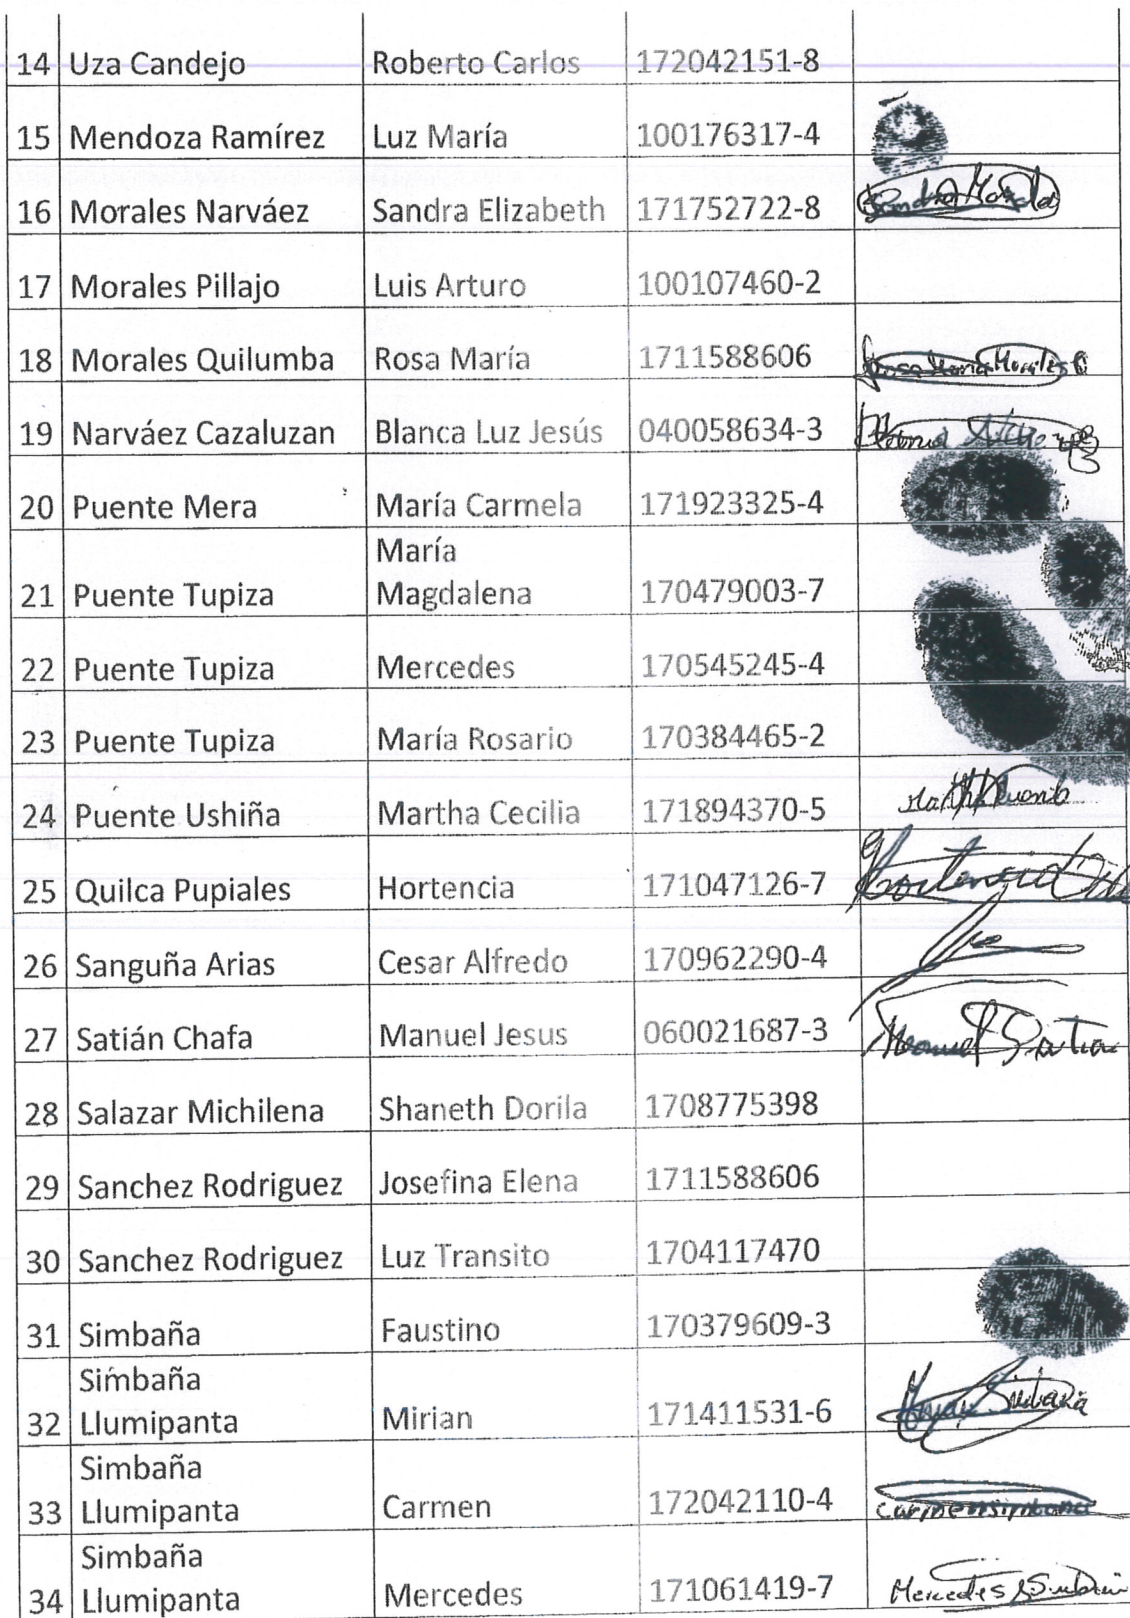 14 Uza Candejo Roberto Carlos 172042151-8
15 Mendoza Ramírez Luz María 100176317-4
16 Morales Narváez Sandra Elizabeth 171752722-8
17 Morales Pillajo Luis Arturo 100107460-2
18 Morales Quilumba Rosa María 1711588606 Rosa María Morales Q
19 Narváez Cazaluzan Blanca Luz Jesús 040058634-3
20 Puente Mera María Carmela 171923325-4
María
21 Puente Tupiza Magdalena 170479003-7
22 Puente Tupiza Mercedes 170545245-4
23 Puente Tupiza María Rosario 170384465-2
24 Puente Ushiña Martha Cecilia 171894370-5
25 Quilca Pupiales Hortencia 171047126-7 Hortencia
26 Sanguña Arias Cesar Alfredo 170962290-4
27 Satián Chafa Manuel Jesus 060021687-3 Manuel Satian
28 Salazar Michilena Shaneth Dorila 1708775398
29 Sanchez Rodriguez Josefina Elena 1711588606
30 Sanchez Rodriguez Luz Transito 1704117470
31 Simbaña Faustino 170379609-3
Simbaña
32 Llumipanta Mirian 171411531-6
Simbaña
33 Llumipanta Carmen 172042110-4 carmen simbaña
Simbaña
34 Llumipanta Mercedes 171061419-7 Mercedes